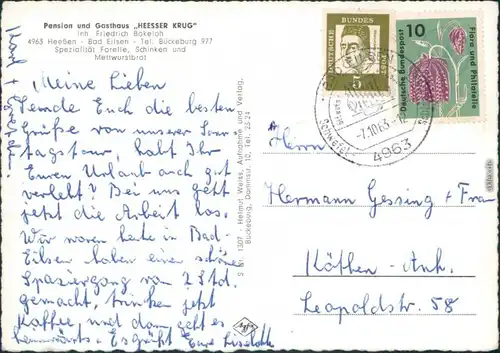 Pension und Gasthaus „HEESSER KRUG"
Inh. Friedrich Bakeloh
4963 Heeßen - Bad Eilsen - Tel. Bückeburg 977
Spezialität Forelle, Schinken und
Mettwurstbrot
Meine Lieben
Sende Euch die besten
Grüße von unserer Sonn-
tagstour, habt Ihr
Euren Urlaub auch gut
verlebt? Bei uns geht
jetzt die Arbeit los.
Wir waren heute in Bad-
Eilsen haben einen schönen
Spaziergang von 2 Std.
gemacht, trinken jetzt
Kaffee und dann geht es
heimwärts. Es grüßt Eure Liselotte
Karl +
S Nr. 1307 Helmut Weiss, Aufnahme und Verlag,
Bückeburg, Dammstr. 10, Tel. 25 24
DEUTSCHE BUNDESPOST
5
10
Deutsche Bundespost
Flora und Philatelie
-7.10.63
4963
Herrn
Hermann Gessing u Frau
Köthen - Anh.
Leopoldstr. 58